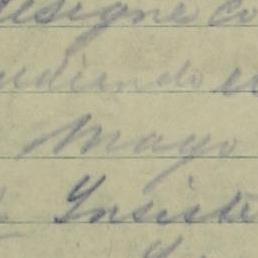 designe co
udiendo
Mayo
Insiste